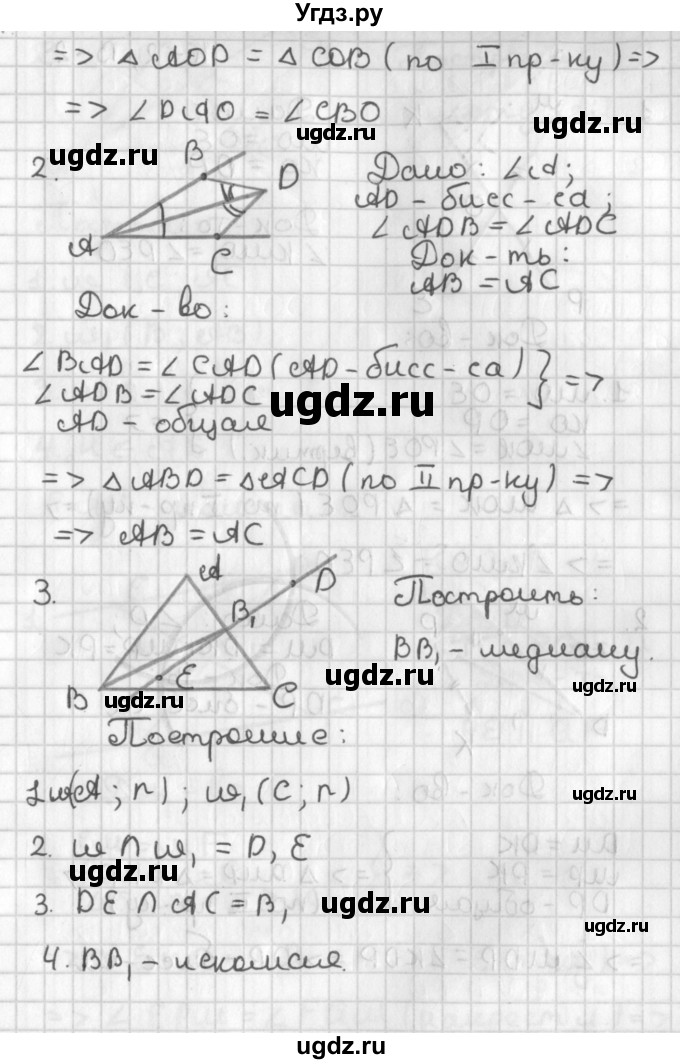 Угдз.ру
=> △ AOD = △ COB (по I пр-ку) =>
=> ∠DAO = ∠CBO
ugdz.ru ugdz.ru
2. B D A C
Дано: ∠A;
AD - бисс-са;
∠ADB = ∠ADC
Док-ть:
AB = AC
Док-во:
∠BAD = ∠CAD (AD - бисс-са)
∠ADB = ∠ADC } =>
AD - общая
ugdz.ru ugdz.ru
=> △ABD = △ACD (по II пр-ку) =>
=> AB = AC
3. A D B₁ B E C
Построить:
BB₁ - медиану.
ugdz.ru ugdz.ru ugdz.ru
Построение:
1. ω(A; r); ω₁(C; r)
ugdz.ru
2. ω ∩ ω₁ = D, E
ugdz.ru
3. DE ∩ AC = B₁
ugdz.ru ugdz.ru
4. BB₁ - искомая.
ugdz.ru